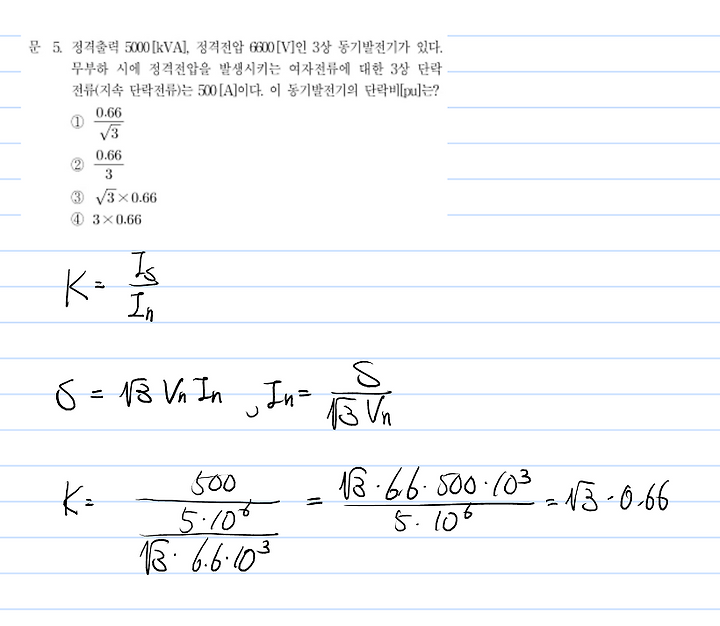 문 5. 정격출력 5000[kVA], 정격전압 6600[V]인 3상 동기발전기가 있다.
무부하 시에 정격전압을 발생시키는 여자전류에 대한 3상 단락
전류(지속 단락전류)는 500[A]이다. 이 동기발전기의 단락비[pu]는?
① 0.66/√3
② 0.66/3
③ √3×0.66
④ 3×0.66
K = Is/In
S = √3 Vn In , In = S/(√3 Vn)
K = 500/((5·10⁶)/(√3·6.6·10³)) = (√3·6.6·500·10³)/(5·10⁶) = √3·0.66